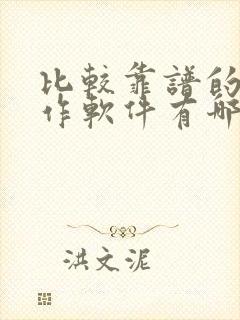 比較靠譜的
作軟件有哪
洪文泥